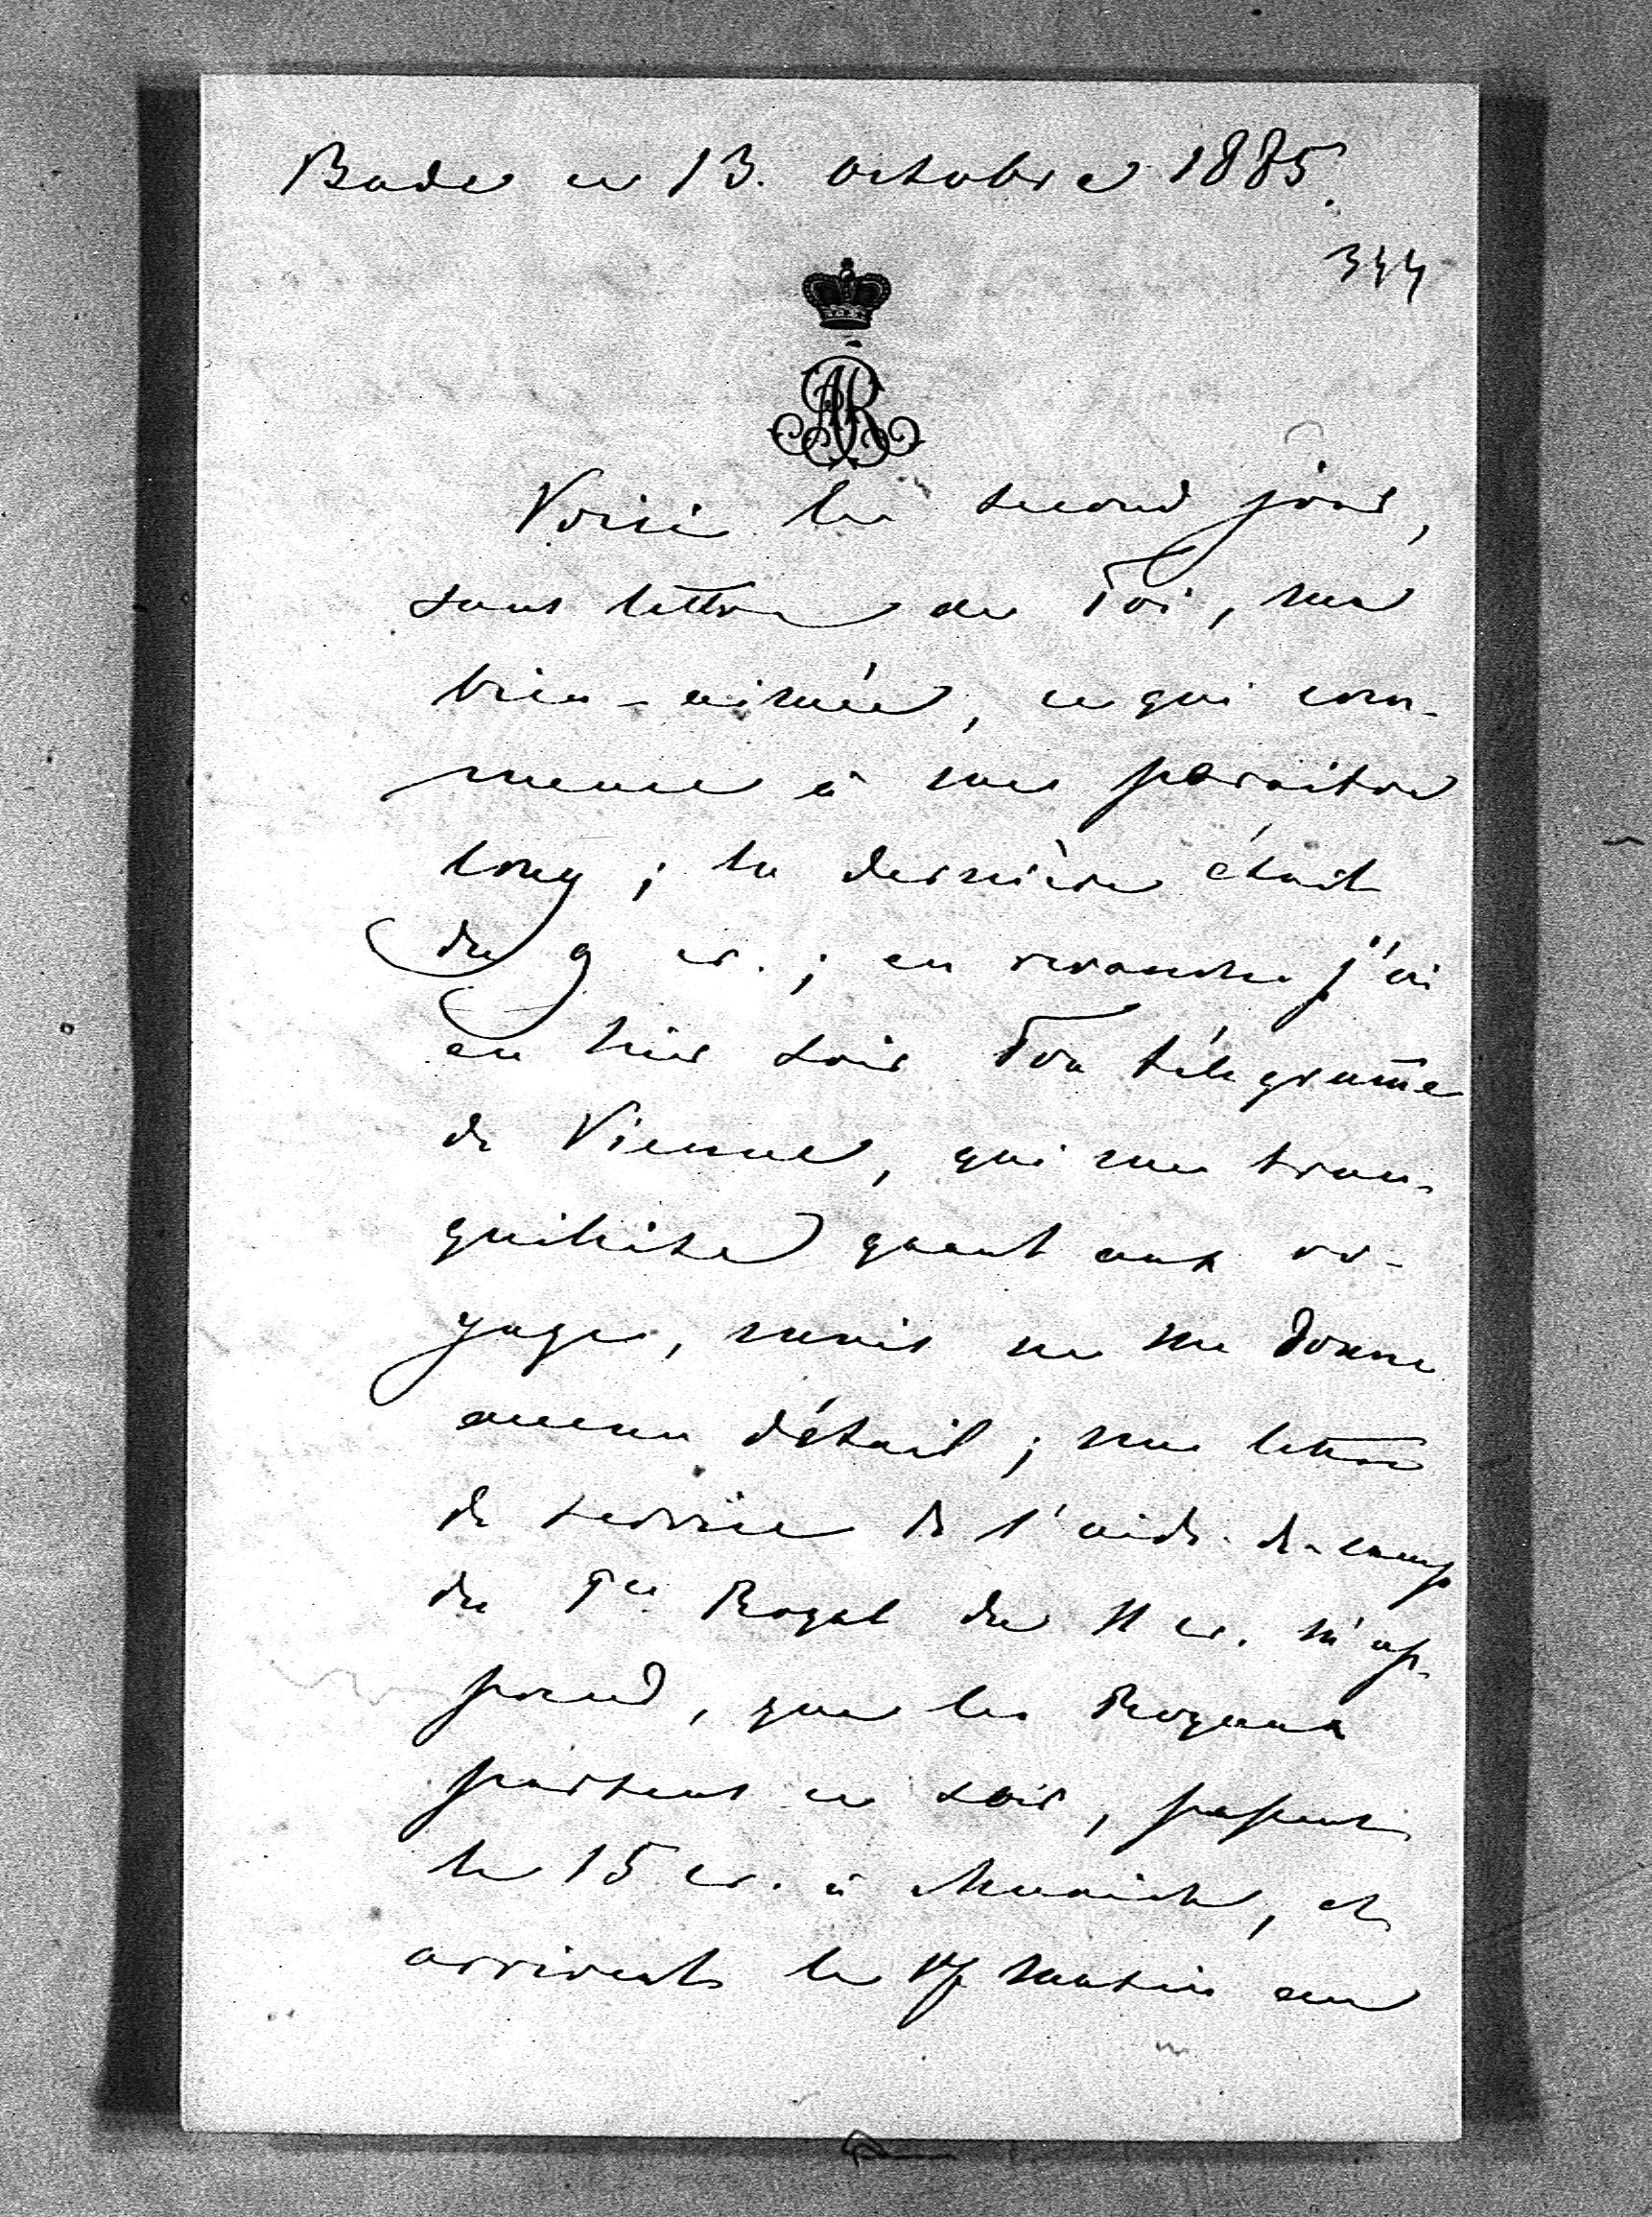 Bade ce 13. octobre 1885.
344
AR
Voici le second jour,
sans lettre de Toi, ma
bien-aimée, ce qui com-
mence à me paraitre
long ; la dernière était
du 9 cr. ; en revanche j'ai
eu hier soir Ton télégram̄e
de Vienne, qui me tran-
quilise quant aux vo-
yage, mais ne me donne
aucun détail ; une lettre
de service de l'aide-de-camp
du Pce Royal du 11 cr. m'ap-
prend, que les Royaux
partent ce soir, passent
le 15 cr. à Munich, et
arrivent le 17 matin au